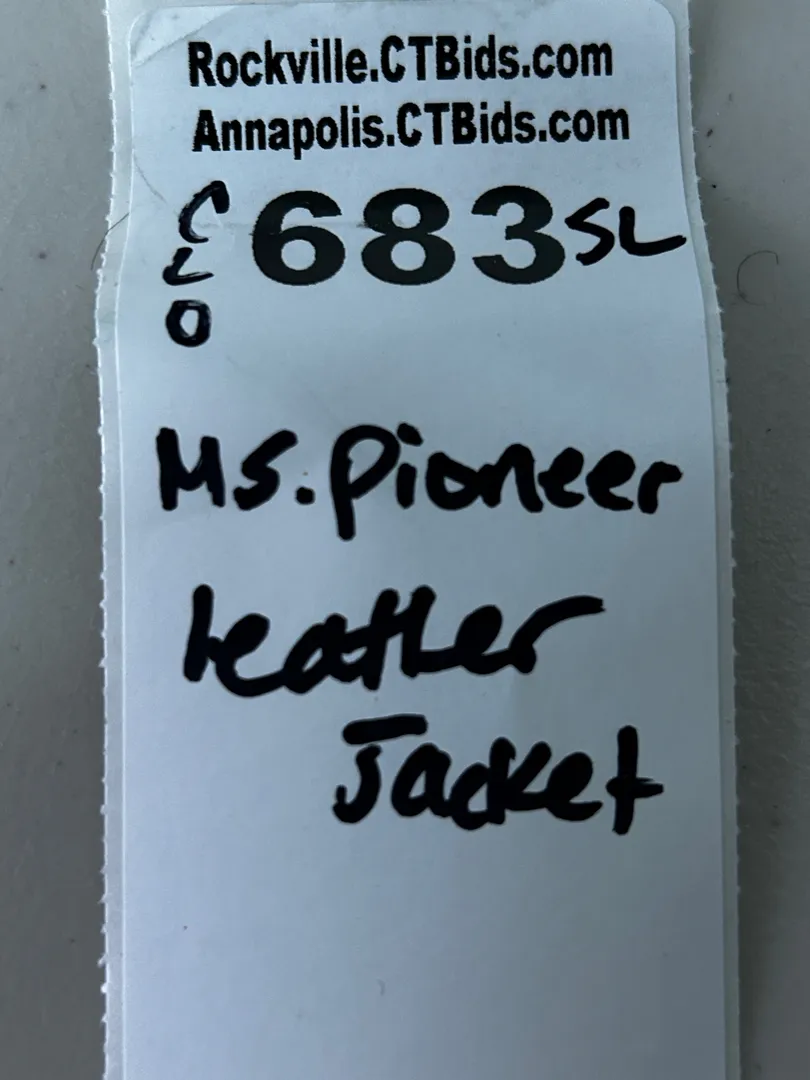 Rockville.CTBids.com
Annapolis.CTBids.com
CLO 683 SL
Ms. Pioneer
Leather
Jacket